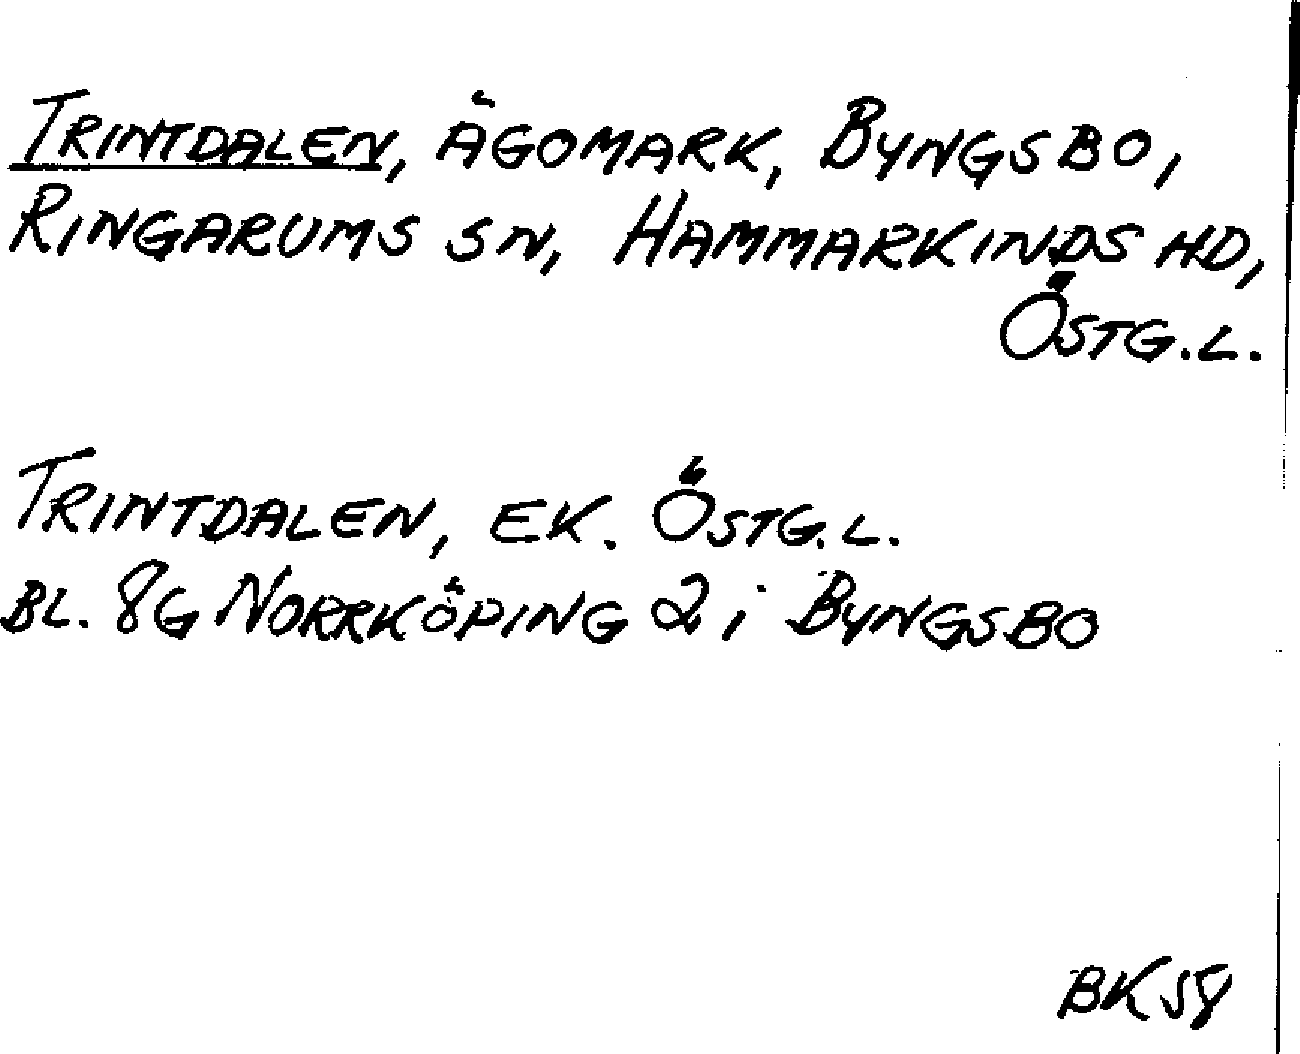 TRINTDALEN, ÄGOMARK, BYNGSBO,
RINGARUMS SN, HAMMARKINDS HD,
ÖSTG.L.
TRINTDALEN, EK. ÖSTG.L.
BL. 8G NORRKÖPING 2 i BYNGSBO
BK 58